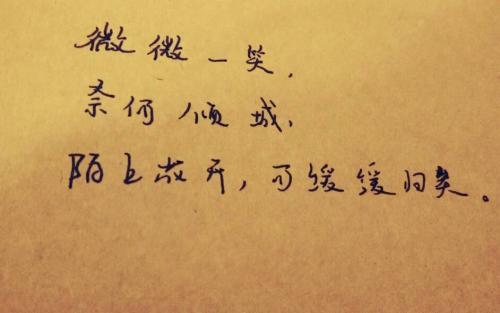 微微一笑,
奈何倾城,
陌上花开,可缓缓归矣。